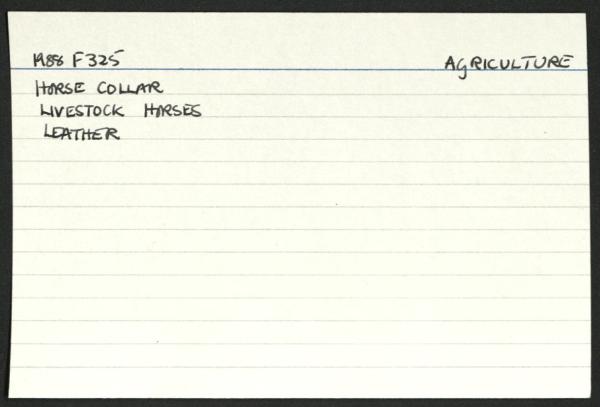 1988 F325 AGRICULTURE
HORSE COLLAR
LIVESTOCK HORSES
LEATHER